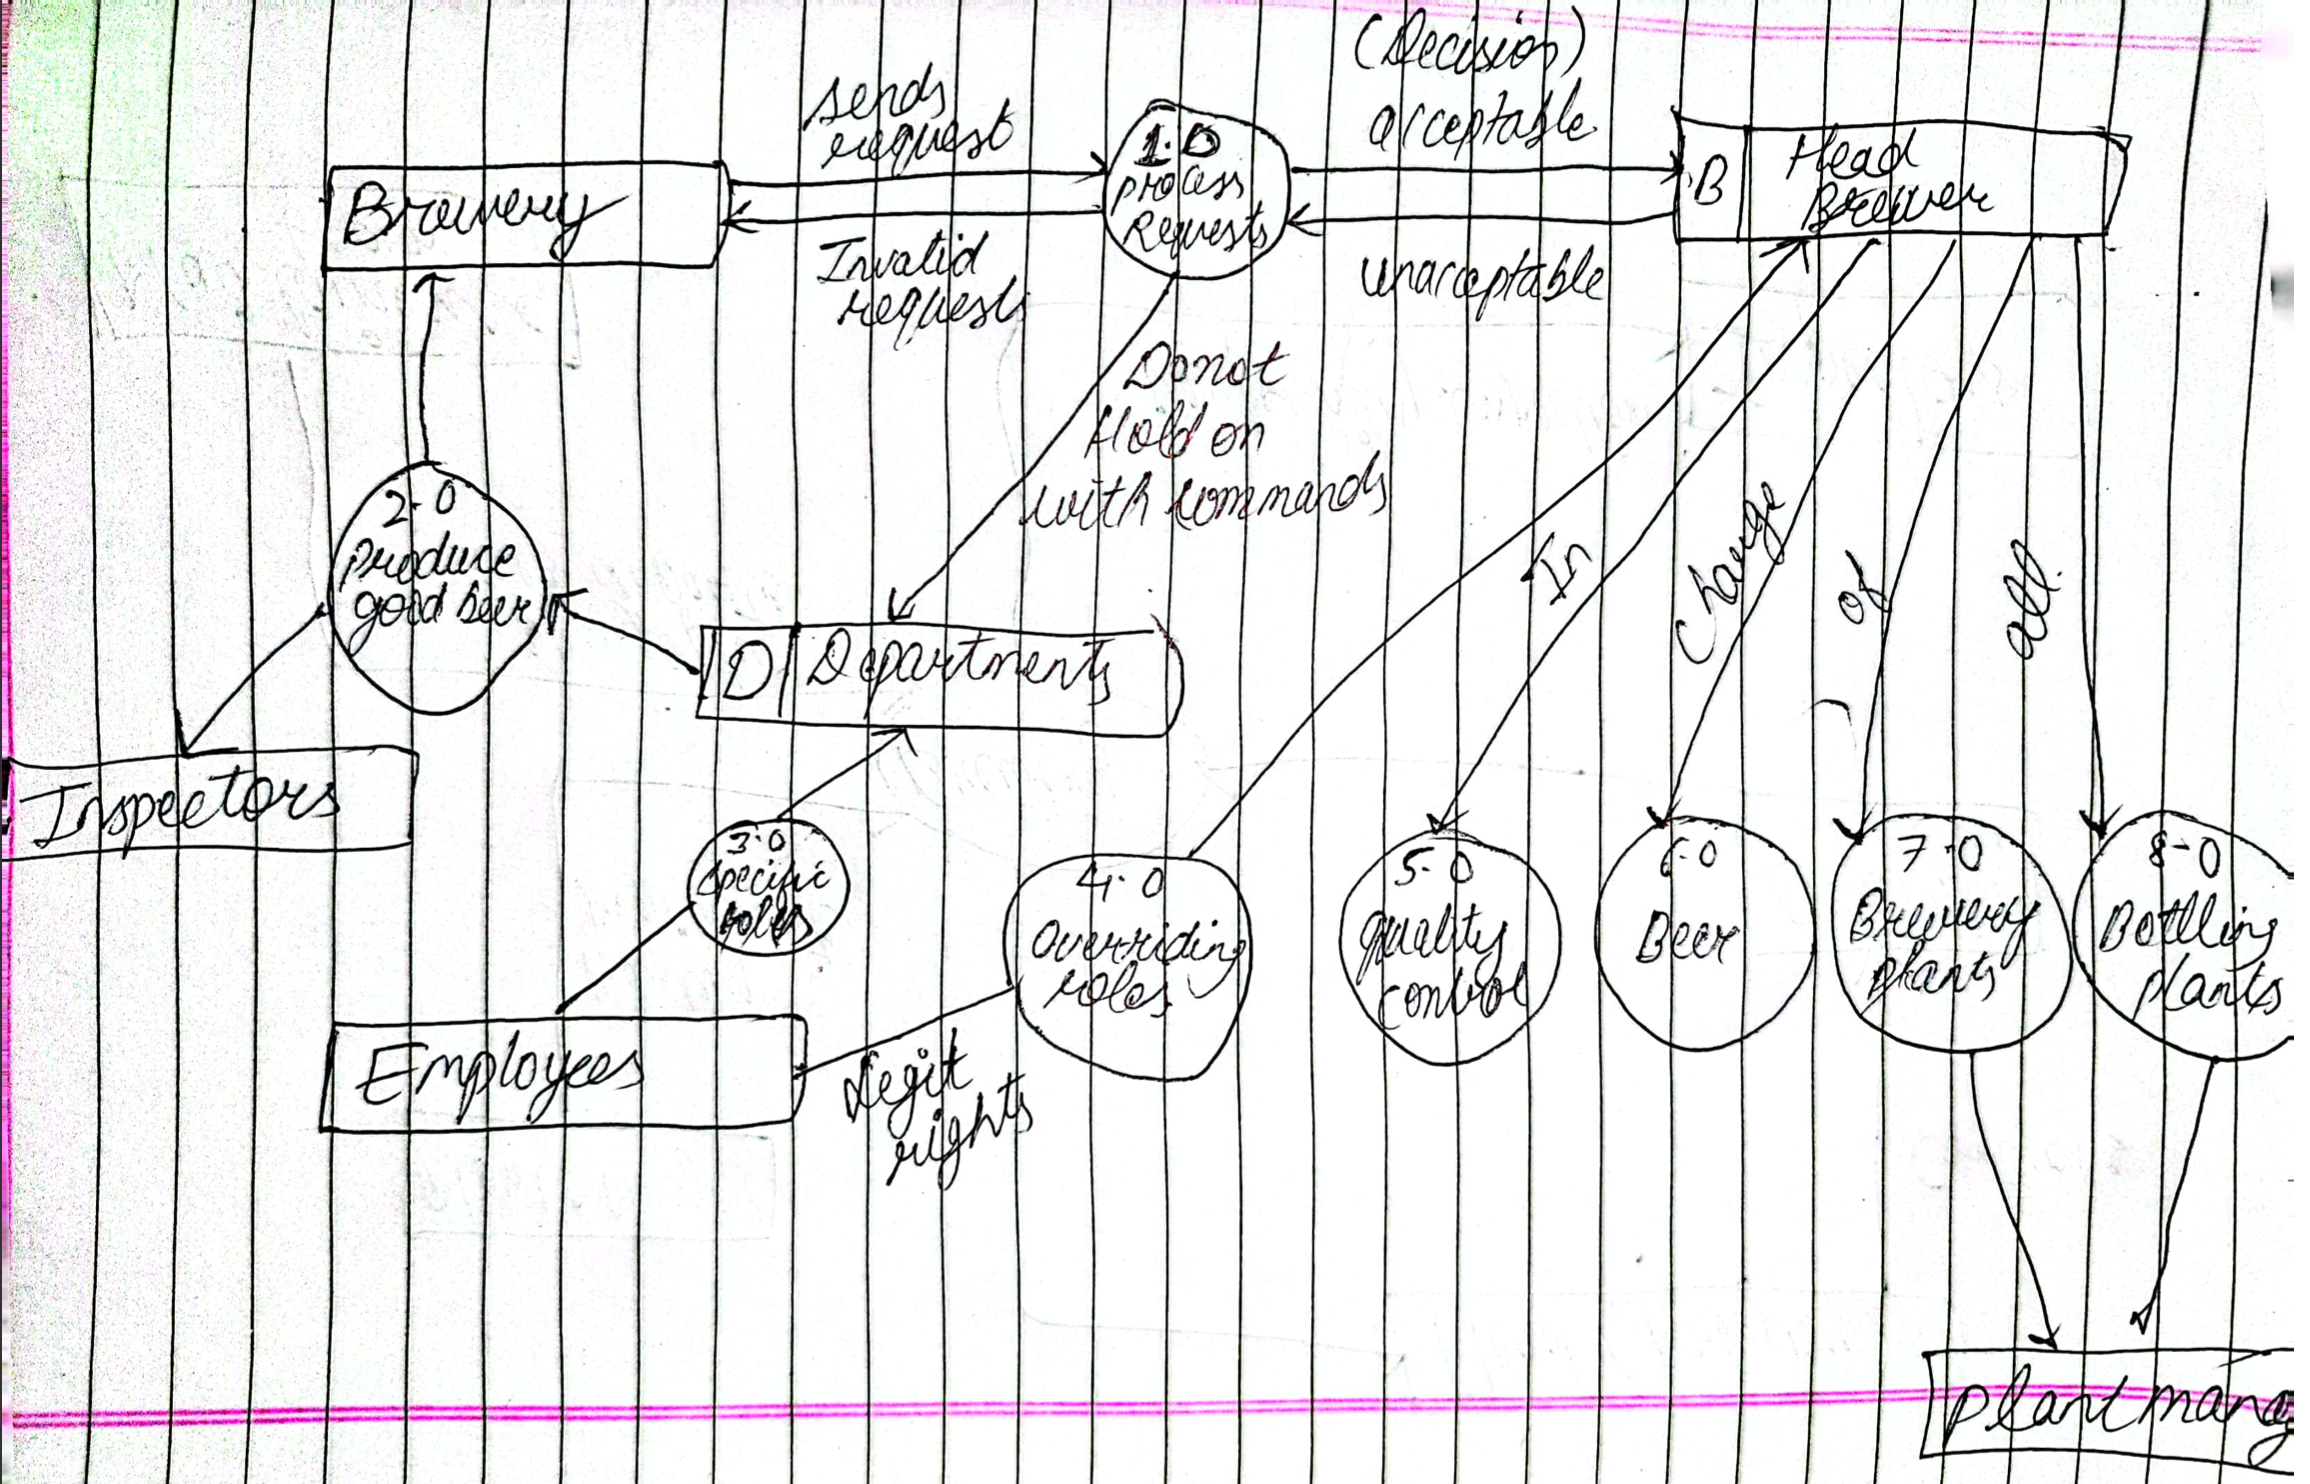 (Decision)
acceptable
sends
request
1.0
process
Requests
B
Head
Brewer
Brewery
Invalid
requests
unacceptable
Do not
Hold on
with commands
2.0
produce
good beer
In
Change
of
all.
D
Departments
Inspectors
3.0
specific
roles
4.0
overriding
roles
5.0
quality
control
6.0
Beer
7.0
Brewery
plants
8-0
Bottling
plants
Employees
Legit
rights
plant mang